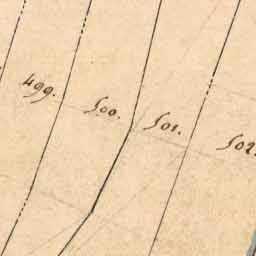 499. 500. 501. 502.